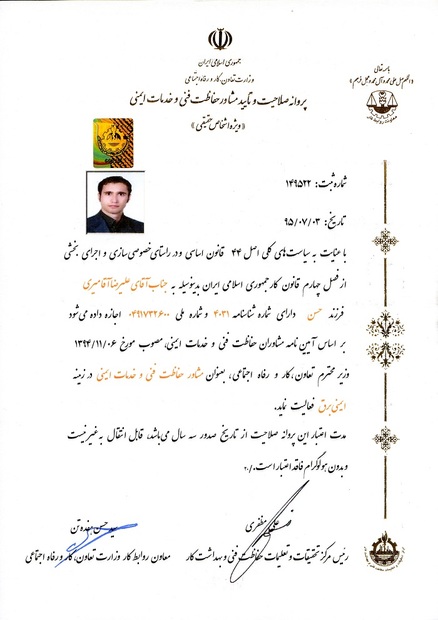 باسمه تعالی
«اللهم صل علی محمد و آل محمد و عجل فرجهم»
جمهوری اسلامی ایران
وزارت تعاون، کار و رفاه اجتماعی
پروانه صلاحیت و تأیید مشاور حفاظت فنی و خدمات ایمنی
«ویژه اشخاص حقیقی»
شماره ثبت: ۱۴۹۵۲۲
تاریخ: ۹۵/۰۷/۰۳
با عنایت به سیاست‌های کلی اصل ۴۴ قانون اساسی و در راستای خصوصی‌سازی و اجرای بخشی
از فصل چهارم قانون کار جمهوری اسلامی ایران بدینوسیله به جناب آقای علیرضا آقامیری
فرزند حسن دارای شماره شناسنامه ۴۰۳۱ و شماره ملی ۰۴۹۱۷۳۲۶۰۰ اجازه داده می‌شود
بر اساس آیین نامه مشاوران حفاظت فنی و خدمات ایمنی، مصوب مورخ ۱۳۹۴/۱۱/۰۶
وزیر محترم تعاون، کار و رفاه اجتماعی، بعنوان مشاور حفاظت فنی و خدمات ایمنی در زمینه
ایمنی برق فعالیت نماید.
مدت اعتبار این پروانه صلاحیت از تاریخ صدور سه سال می‌باشد، قابل انتقال به غیر نیست
و بدون هولوگرام فاقد اعتبار است./.
علی مظفری
رئیس مرکز تحقیقات و تعلیمات حفاظت فنی و بهداشت کار
سید حسن هفده تن
معاون روابط کار وزارت تعاون، کار و رفاه اجتماعی